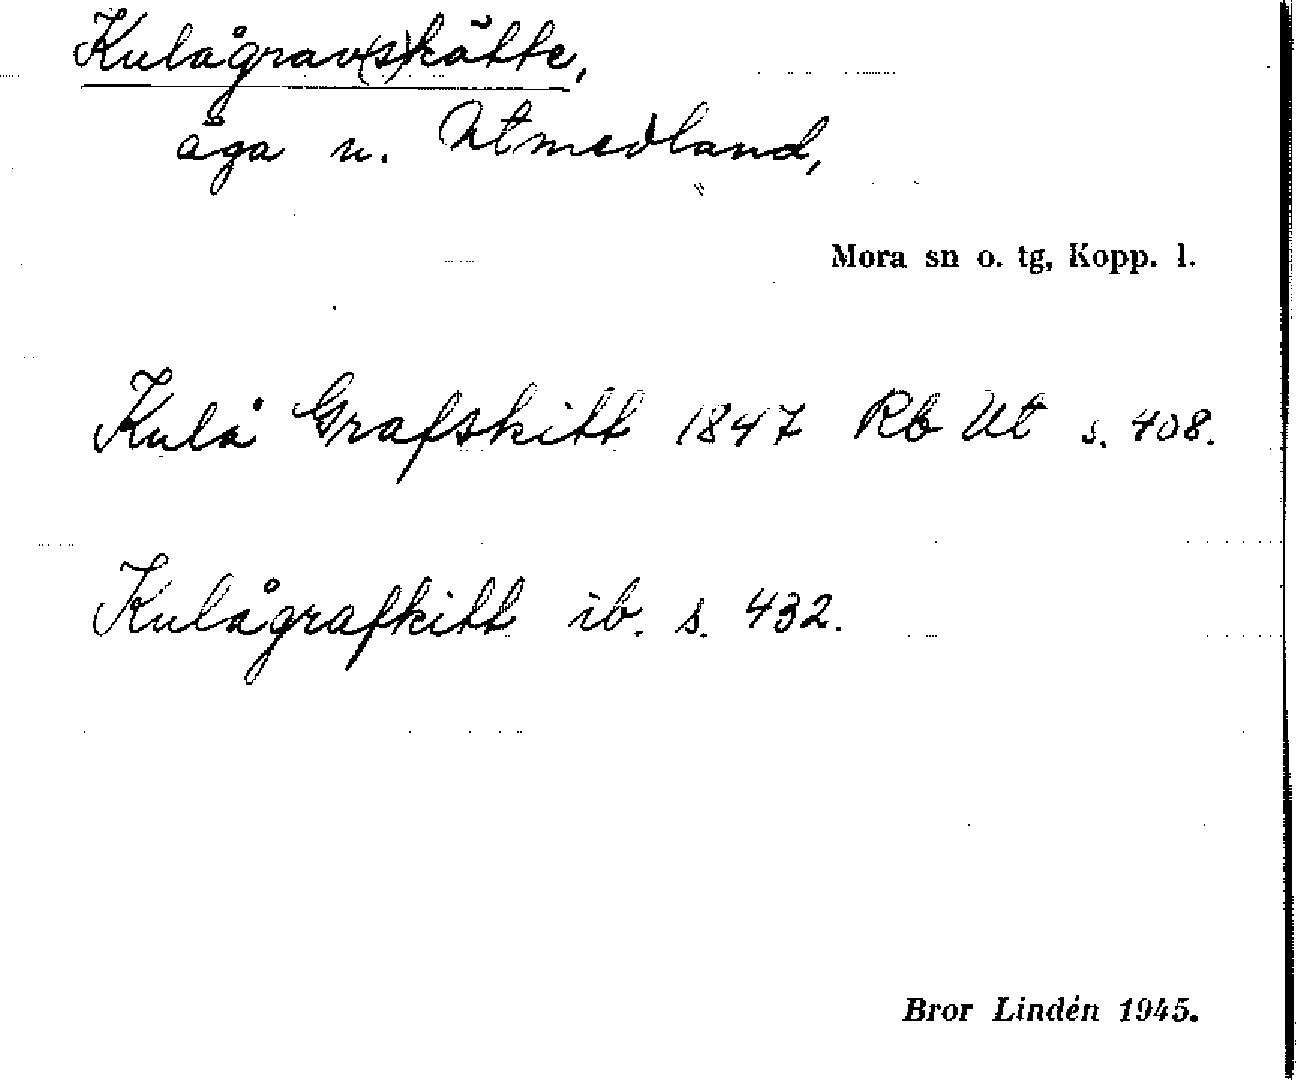 Kulågrav(s)kätte,
äga u. Utmedland,
Mora sn o. tg, Kopp. l.
Kulå Grafskitt 1847 Rb Ut s. 408.
Kulågrafkitt ib. s. 432.
Bror Lindén 1945.